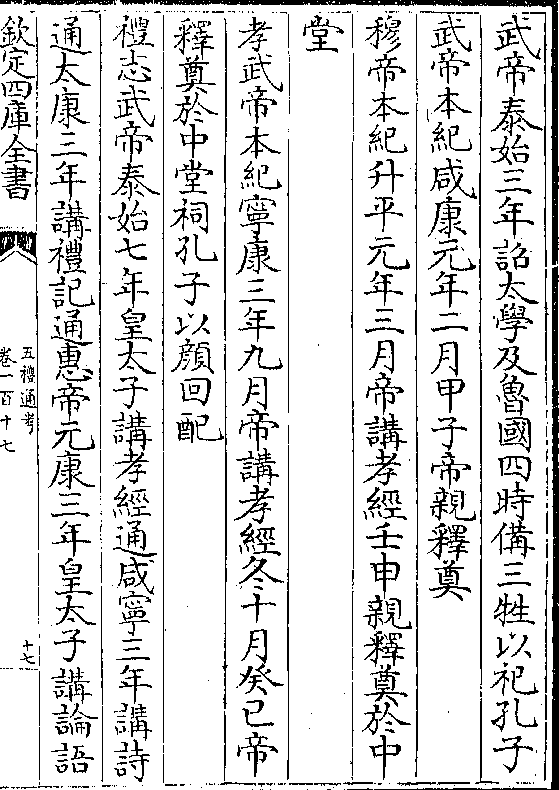 武帝泰始三年詔太學及魯國四時備三牲以祀孔子
武帝本紀咸康元年二月甲子帝親釋奠
穆帝本紀升平元年三月帝講孝經壬申親釋奠於中
堂
孝武帝本紀寧康三年九月帝講孝經冬十月癸巳帝
釋奠於中堂祠孔子以顔回配
禮志武帝泰始七年皇太子講孝經通咸寧三年講詩
通太康三年講禮記通惠帝元康三年皇太子講論語
欽定四庫全書
五禮通考
卷一百十七
十七